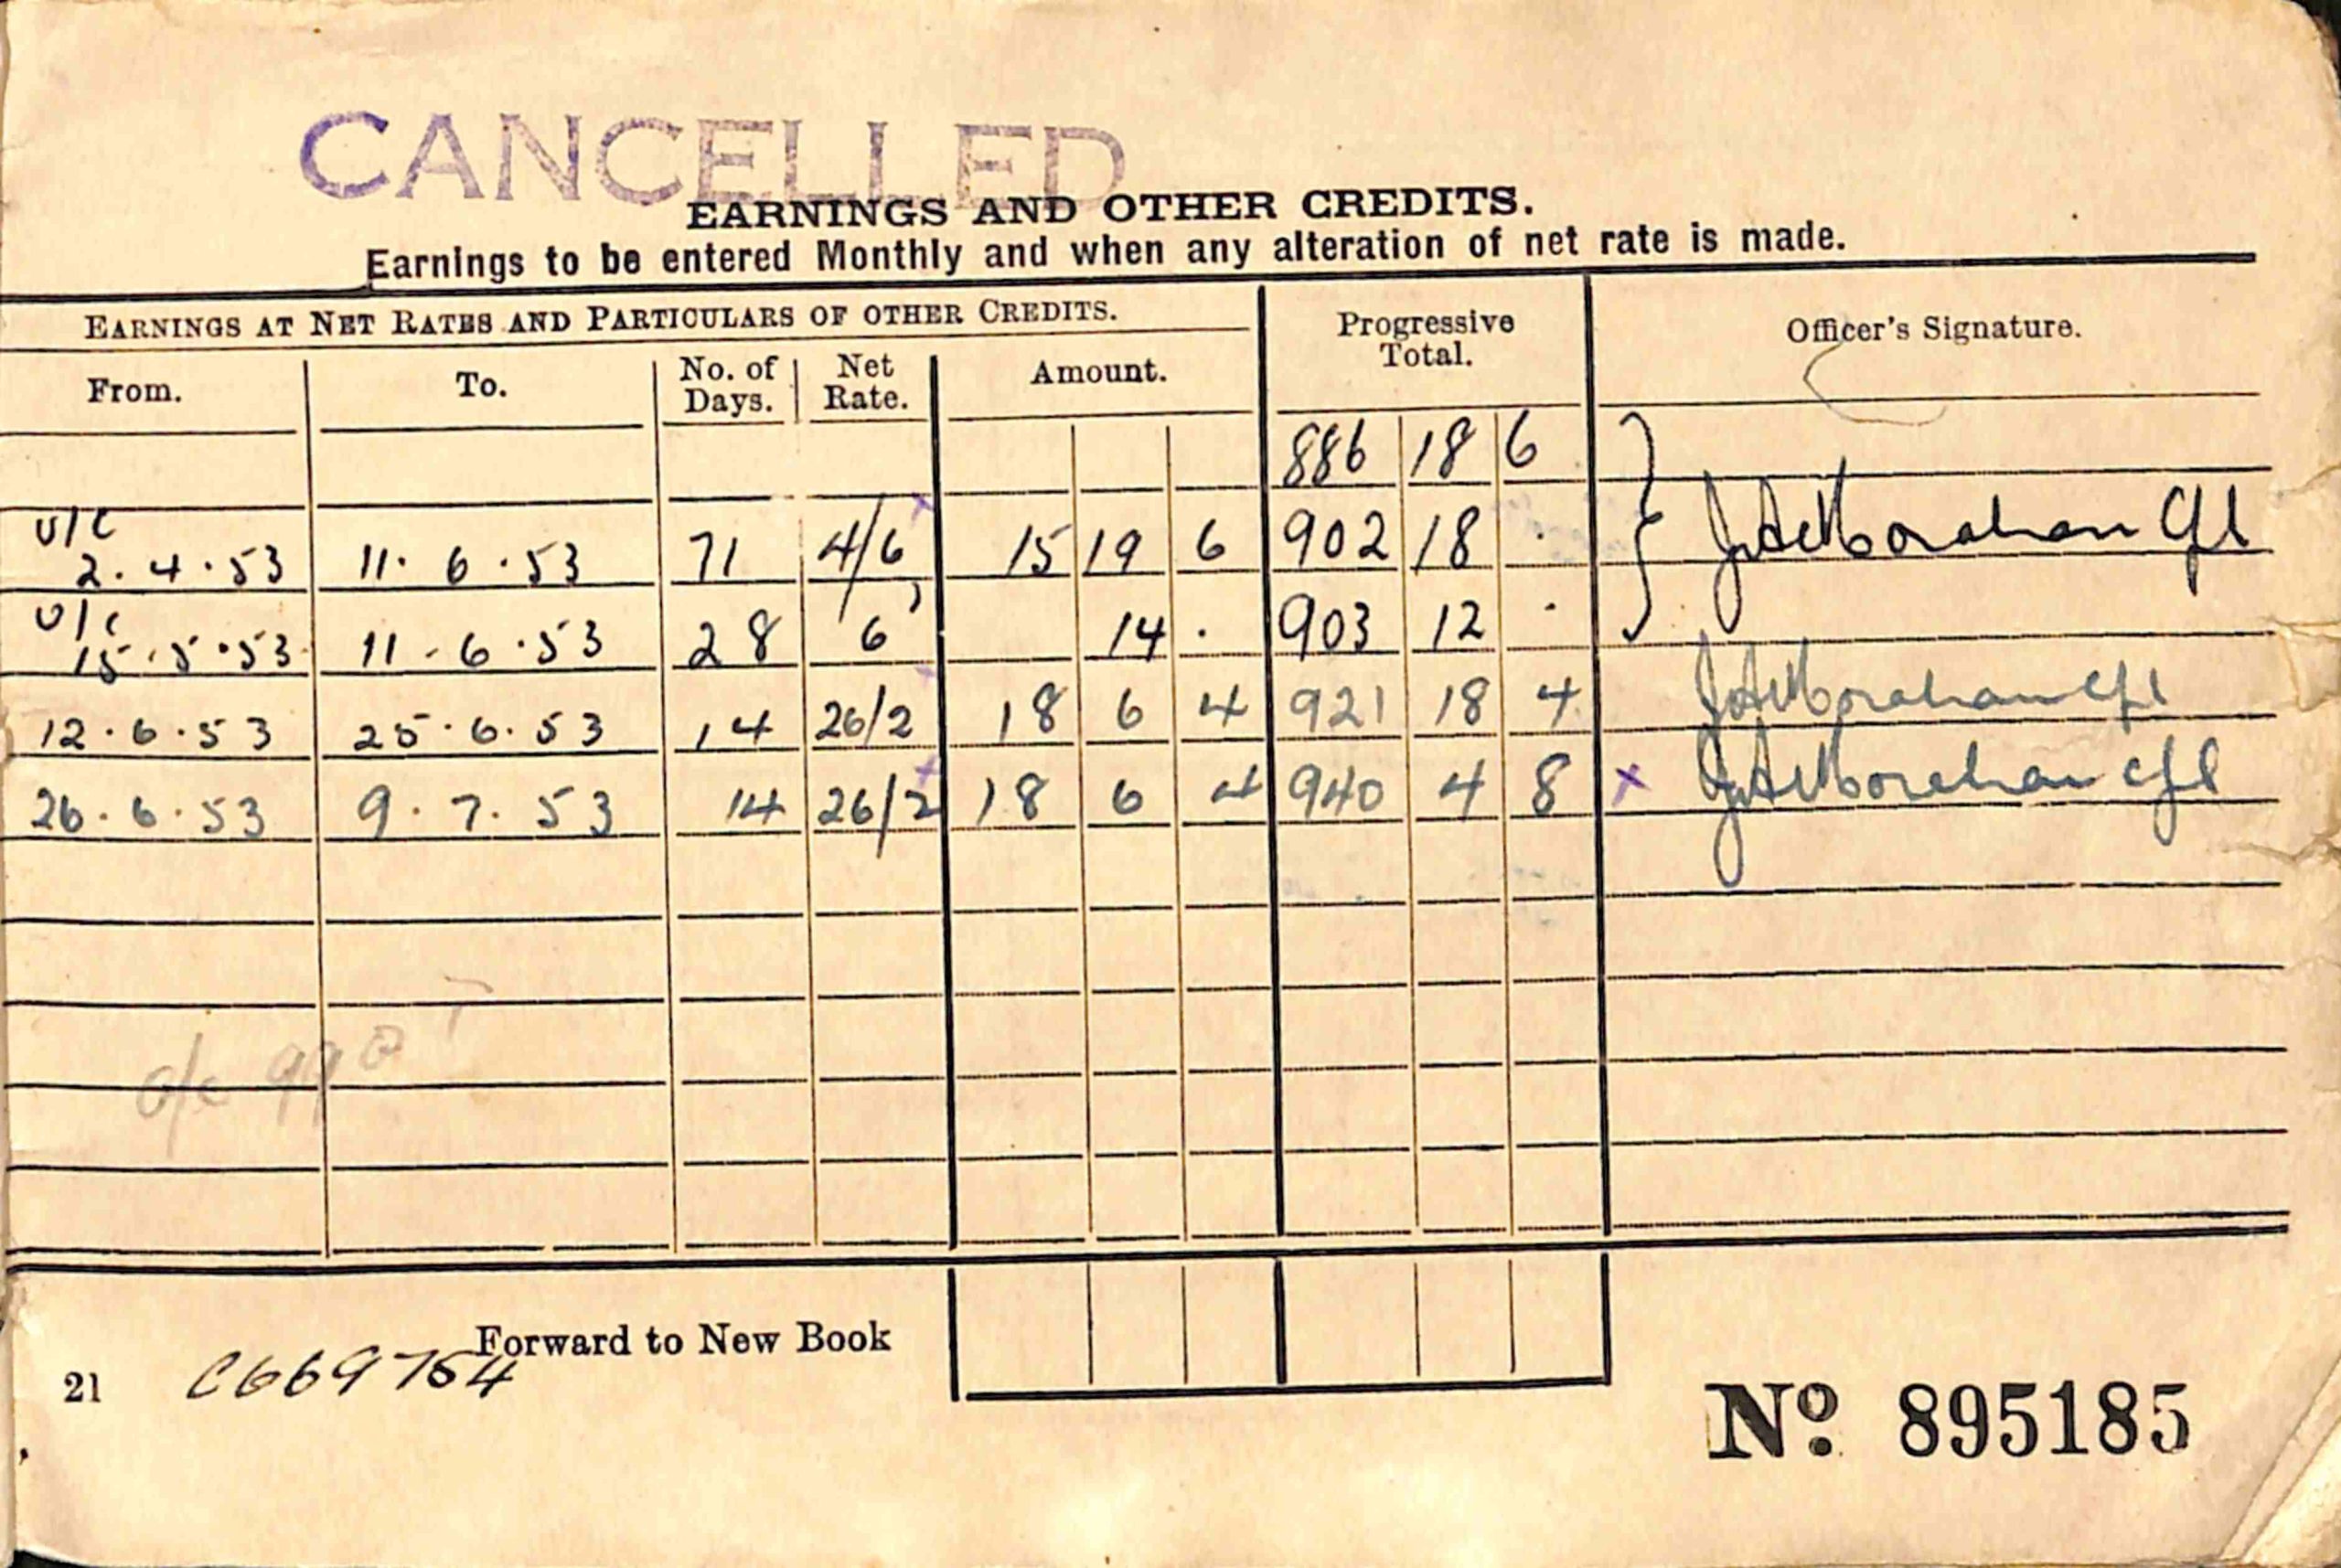 CANCELLED
EARNINGS AND OTHER CREDITS.
Earnings to be entered Monthly and when any alteration of net rate is made.
EARNINGS AT NET RATES AND PARTICULARS OF OTHER CREDITS. Progressive Total. Officer's Signature.
From. To. No. of Days. Net Rate. Amount.
886 18 6
U/C
2.4.53 11.6.53 71 4/6 15 19 6 902 18 .
U/C
15.5.53 11.6.53 28 6 14 . 903 12 .
12.6.53 25.6.53 14 26/2 18 6 4 921 18 4
26.6.53 9.7.53 14 26/2 18 6 4 940 4 8 x
Forward to New Book
21 C669754
No 895185